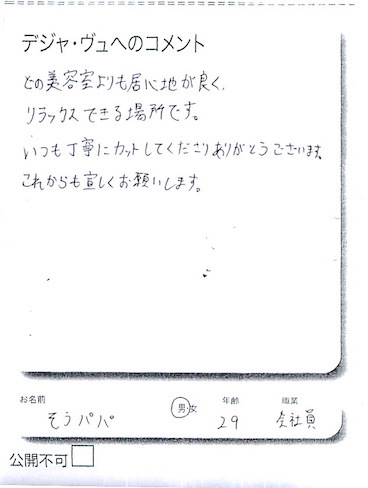 デジャ・ヴュへのコメント
どの美容室よりも居心地が良く、
リラックスできる場所です。
いつも丁寧にカットしてくださりありがとうございます。
これからも宜しくお願いします。
お名前 男・女 年齢 職業
そうパパ 29 会社員
公開不可